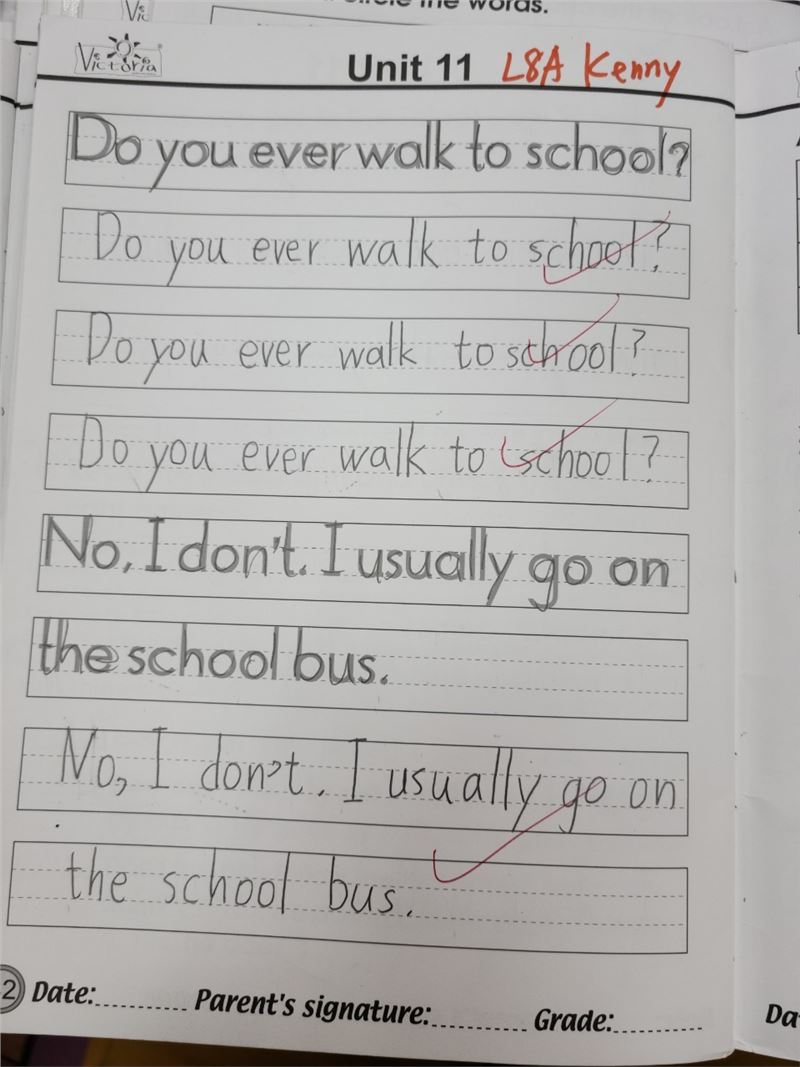 circle the words.
Vic
Victoria
Unit 11 L8A Kenny
Do you ever walk to school?
Do you ever walk to school?
Do you ever walk to school?
Do you ever walk to school?
No, I don't. I usually go on
the school bus.
No, I don't. I usually go on
the school bus.
2 Date: Parent's signature: Grade:
Da